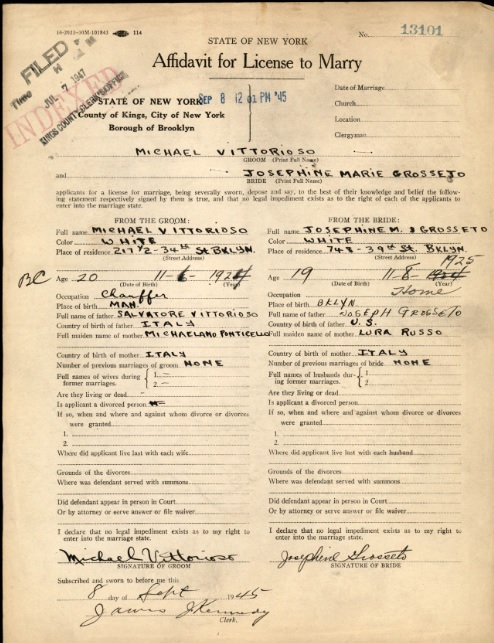 114
STATE OF NEW YORK
No. 13101
Affidavit for License to Marry
FILED
Time
JUL 7 1947
INDEXED
KINGS COUNTY CLERK'S OFFICE
SEP 8 12 01 PM '45
STATE OF NEW YORK
County of Kings, City of New York
Borough of Brooklyn
Date of Marriage
Church
Location
Clergyman
MICHAEL VITTORIOSO
GROOM (Print Full Name)
and JOSEPHINE MARIE GROSSETO
BRIDE (Print Full Name)
applicants for a license for marriage, being severally sworn, depose and say, to the best of their knowledge and belief the follow-
ing statement respectively signed by them is true, and that no legal impediment exists as to the right of each of the applicants to
enter into the marriage state.
FROM THE GROOM:
Full name MICHAEL VITTORIOSO
Color WHITE
Place of residence 217 1/2 - 34th St BKLYN.
(Street Address)
BC Age 20 11-6-
(Date of Birth) (Year)
Occupation Chauffer
Place of birth MAN.
Full name of father SALVATORE VITTORIOSO
Country of birth of father ITALY
Full maiden name of mother PONTICELLO
Country of birth of mother ITALY
Number of previous marriages of groom NONE
Full names of wives during former marriages. 1. — 2. —
Are they living or dead
Is applicant a divorced person
If so, when and where and against whom divorce or divorces
were granted
1.
2.
Where did applicant live last with each wife
Grounds of the divorces
Where was defendant served with summons
Did defendant appear in person in Court
Or by attorney or serve answer or file waiver
I declare that no legal impediment exists as to my right to
enter into the marriage state.
Michael Vittorioso
SIGNATURE OF GROOM
FROM THE BRIDE:
Full name JOSEPHINE M. GROSSETO
Color WHITE
Place of residence 743-39th St. BKLYN.
(Street Address)
1925
Age 19 11-8-
(Date of Birth) (Year)
Occupation Home
Place of birth BKLYN
Full name of father JOSEPH GROSSETO
Country of birth of father U.S.
Full maiden name of mother LURA RUSSO
Country of birth of mother ITALY
Number of previous marriages of bride NONE
Full names of husbands during former marriages. 1. 2.
Are they living or dead
Is applicant a divorced person
If so, when and where and against whom divorce or divorces
were granted
1.
2.
Where did applicant live last with each husband
Grounds of the divorces
Where was defendant served with summons
Did defendant appear in person in Court
Or by attorney or serve answer or file waiver
I declare that no legal impediment exists as to my right to
enter into the marriage state.
Josephine Grosseto
SIGNATURE OF BRIDE
Subscribed and sworn to before me this
8 day of Sept 1945
James J Kennedy
Clerk.